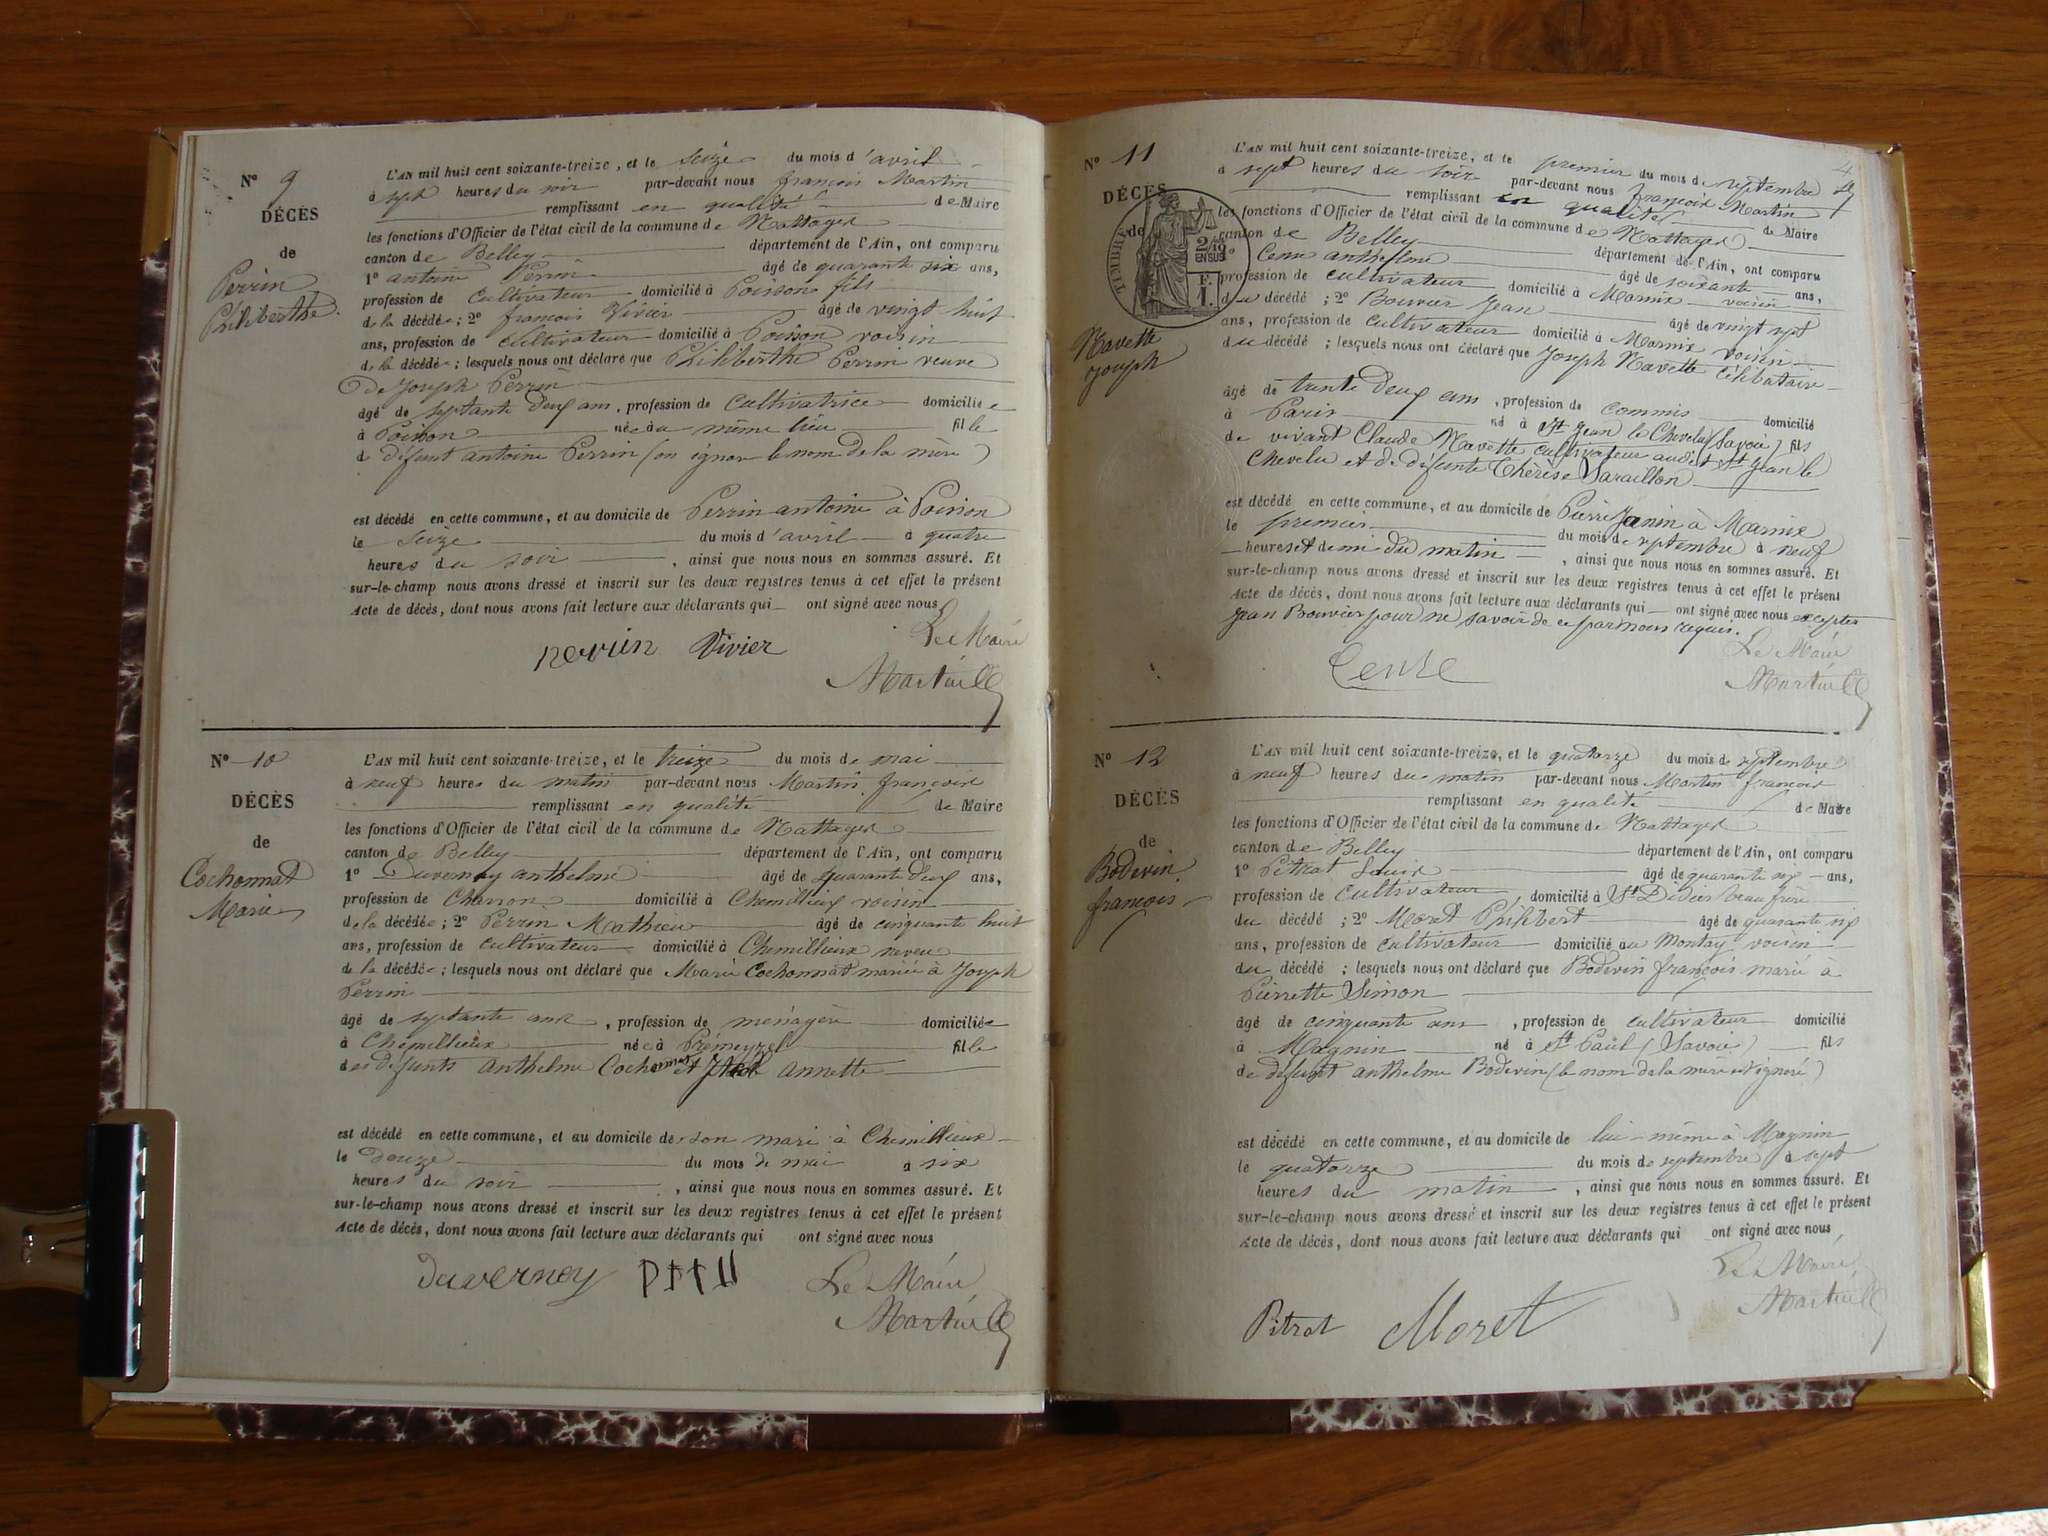 N° 9
DÉCÈS
de
Perrin
Philiberthe
L'AN mil huit cent soixante-treize, et le seize du mois d'avril
à sept heures du soir par-devant nous françois Martin
remplissant en qualité de Maire
les fonctions d'Officier de l'état civil de la commune de Nattages
canton de Belley département de l'Ain, ont comparu
1° antoine Perrin âgé de quarante six ans,
profession de cultivateur domicilié à Poisson fils
de la décédée ; 2° françois Vivier âgé de vingt huit
ans, profession de cultivateur domicilié à Poisson voisin
de la décédée ; lesquels nous ont déclaré que Philiberthe Perrin veuve
de Joseph Perrin
âgé de septante deux ans, profession de cultivatrice domiciliée
à Poisson née au même lieu fille
de défunt antoine Perrin (on ignore le nom de la mère)
est décédé en cette commune, et au domicile de Perrin antoine à Poisson
le seize du mois d'avril à quatre
heures du soir, ainsi que nous nous en sommes assuré. Et
sur-le-champ nous avons dressé et inscrit sur les deux registres tenus à cet effet le présent
Acte de décès, dont nous avons fait lecture aux déclarants qui ont signé avec nous
perrin Vivier Le Maire
Martin
N° 10
DÉCÈS
de
Cochonnat
Marie
L'AN mil huit cent soixante-treize, et le treize du mois de mai
à neuf heures du matin par-devant nous Martin françois
remplissant en qualité de Maire
les fonctions d'Officier de l'état civil de la commune de Nattages
canton de Belley département de l'Ain, ont comparu
1° Duvernay anthelme âgé de quarante deux ans,
profession de Charron domicilié à Chemillieux voisin
de la décédée ; 2° Perrin Mathieu âgé de cinquante huit
ans, profession de cultivateur domicilié à Chemillieux neveu
de la décédée ; lesquels nous ont déclaré que Marie Cochonnat mariée à Joseph
Perrin
âgé de septante ans, profession de ménagère domiciliée
à Chemillieux née à Prémeyzel fille
des défunts anthelme Cochonnat et annette
est décédé en cette commune, et au domicile de son mari à Chemillieux
le douze du mois de mai à six
heures du soir, ainsi que nous nous en sommes assuré. Et
sur-le-champ nous avons dressé et inscrit sur les deux registres tenus à cet effet le présent
Acte de décès, dont nous avons fait lecture aux déclarants qui ont signé avec nous
duvernay Le Maire
Martin
N° 11
DÉCÈS
de
TIMBRE
2/10 EN SUS
F. 1.
Navette
joseph
L'AN mil huit cent soixante-treize, et le premier du mois de septembre
à sept heures du soir par-devant nous françois Martin
remplissant en qualité de Maire
les fonctions d'Officier de l'état civil de la commune de Nattages
canton de Belley département de l'Ain, ont comparu
1° anthelme âgé de soixante ans,
profession de cultivateur domicilié à Marnix voisin
du décédé ; 2° Bouvier Jean âgé de vingt sept
ans, profession de cultivateur domicilié à Marnix voisin
du décédé ; lesquels nous ont déclaré que Joseph Navette célibataire
âgé de trente deux ans, profession de commis domicilié
à Paris né à St Jean le Chevelu (Savoie) fils
de vivant Claude Navette cultivateur audit St Jean le
Chevelu et de défunte Thérèse Saraillon
est décédé en cette commune, et au domicile de Pierre Janin à Marnix
le premier du mois de septembre à neuf
heures et demi du matin, ainsi que nous nous en sommes assuré. Et
sur-le-champ nous avons dressé et inscrit sur les deux registres tenus à cet effet le présent
Acte de décès, dont nous avons fait lecture aux déclarants qui ont signé avec nous excepter
Jean Bouvier pour ne savoir de ce par nous requis.
Le Maire
Martin
N° 12
DÉCÈS
de
Bodevin
françois
L'AN mil huit cent soixante-treize, et le quatorze du mois de septembre
à neuf heures du matin par-devant nous Martin françois
remplissant en qualité de Maire
les fonctions d'Officier de l'état civil de la commune de Nattages
canton de Belley département de l'Ain, ont comparu
1° Pitrat Louis âgé de quarante six ans,
profession de cultivateur domicilié à St Didier beau frère
du décédé ; 2° Moret Philibert âgé de quarante six
ans, profession de cultivateur domicilié au Montay voisin
du décédé ; lesquels nous ont déclaré que Bodevin françois marié à
Pierrette Simon
âgé de cinquante ans, profession de cultivateur domicilié
à Magnin né à St Paul (Savoie) fils
de défunt anthelme Bodevin (le nom de la mère est ignoré)
est décédé en cette commune, et au domicile de lui-même à Magnin
le quatorze du mois de septembre à sept
heures du matin, ainsi que nous nous en sommes assuré. Et
sur-le-champ nous avons dressé et inscrit sur les deux registres tenus à cet effet le présent
Acte de décès, dont nous avons fait lecture aux déclarants qui ont signé avec nous
Le Maire
Pitrat Moret Martin